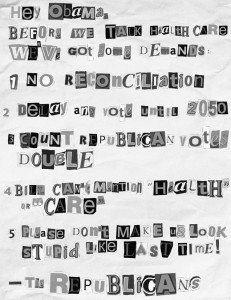 Hey Obama,
BEFORE WE TALK HEALTH CARE
WE'VE Got some DEMANDS:
1 NO RECONCILIATION
2 Delay any vote until 2050
3 COUNT REPUBLICAN votes
DOUBLE
4 BILL CAN'T MENTION "HEALTH"
OR "CARE"
5 Please DON'T MAKE US LOOK
STUPID LIKE LAST TIME!
— THE REPUBLICANS